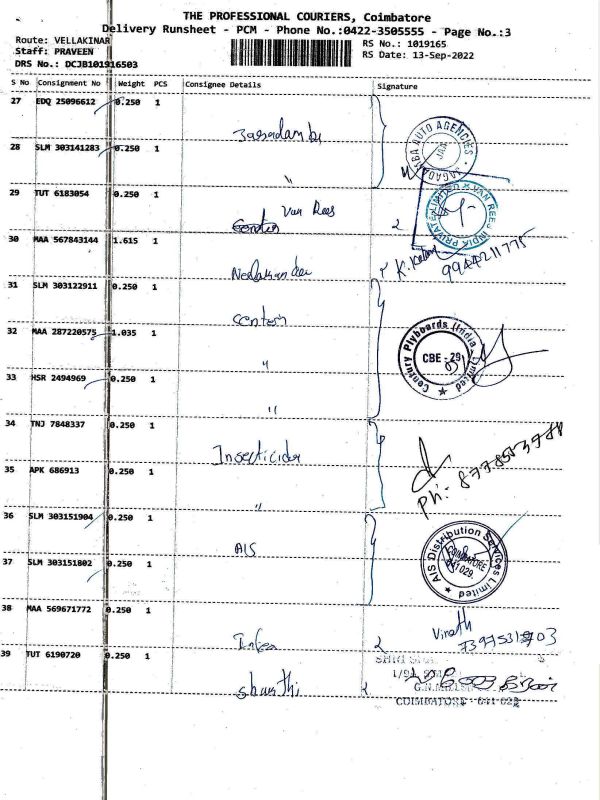 THE PROFESSIONAL COURIERS, Coimbatore
Delivery Runsheet - PCM - Phone No.:0422-3505555 - Page No.:3
Route: VELLAKINAR
Staff: PRAVEEN
DRS No.: DCJB101916503
RS No.: 1019165
RS Date: 13-Sep-2022
S No Consignment No Weight PCS Consignee Details Signature
27 EDQ 25096612 0.250 1
28 SLM 303141283 0.250 1 "
29 TUT 6183054 0.250 1 Van Rees
30 MAA 567843144 1.615 1
9944211775
31 SLM 303122911 0.250 1 Century
32 MAA 287220575 1.035 1 "
Century Plyboards (India) Limited
CBE - 29
33 HSR 2494969 0.250 1 "
34 TNJ 7848337 0.250 1 Insecticides
35 APK 686913 0.250 1 "
36 SLM 303151904 0.250 1 AIS
37 SLM 303151802 0.250 1
AIS Distribution Services Limited
COIMBATORE
641 029.
38 MAA 569671772 0.250 1
Vinoth
39 TUT 6190720 0.250 1 Shanthi
COIMBATORE - 641 029